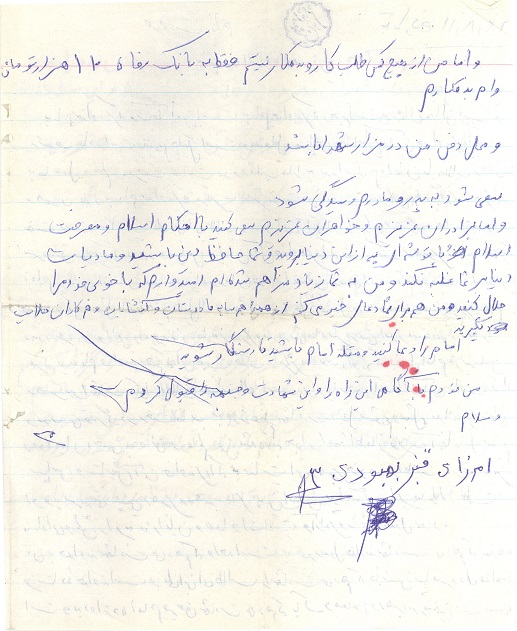 و اما من از هیچ کس طلب کار و بدهکار نیستم فقط به بانک رفاه ۱۰ هزار تومان
وام بدهکارم
و محل دفن من در مزار شهدا باشد
سعی شود به پدر و مادرم رسیدگی شود
و اما برادران عزیزم و خواهران عزیزم سعی کنید با احکام اسلام و معرفت
اسلام از این دنیا بروید و شما حافظ دین باشید و مادیات
دنیا بر شما غلبه نکند و من به شما زیاد امیدوارم که با خوبی خود مرا
حلال کنید و من هم برای شما دعای خیر می کنم از همه همسایه ها دوستان و آشنایان و همکاران حلالیت
امام را دعا کنید و مقلد امام باشید تا رستگار شوید
من خودم با آگاهی این راه را و این شهادت را قبول کردم
والسلام
قنبر بهبودی